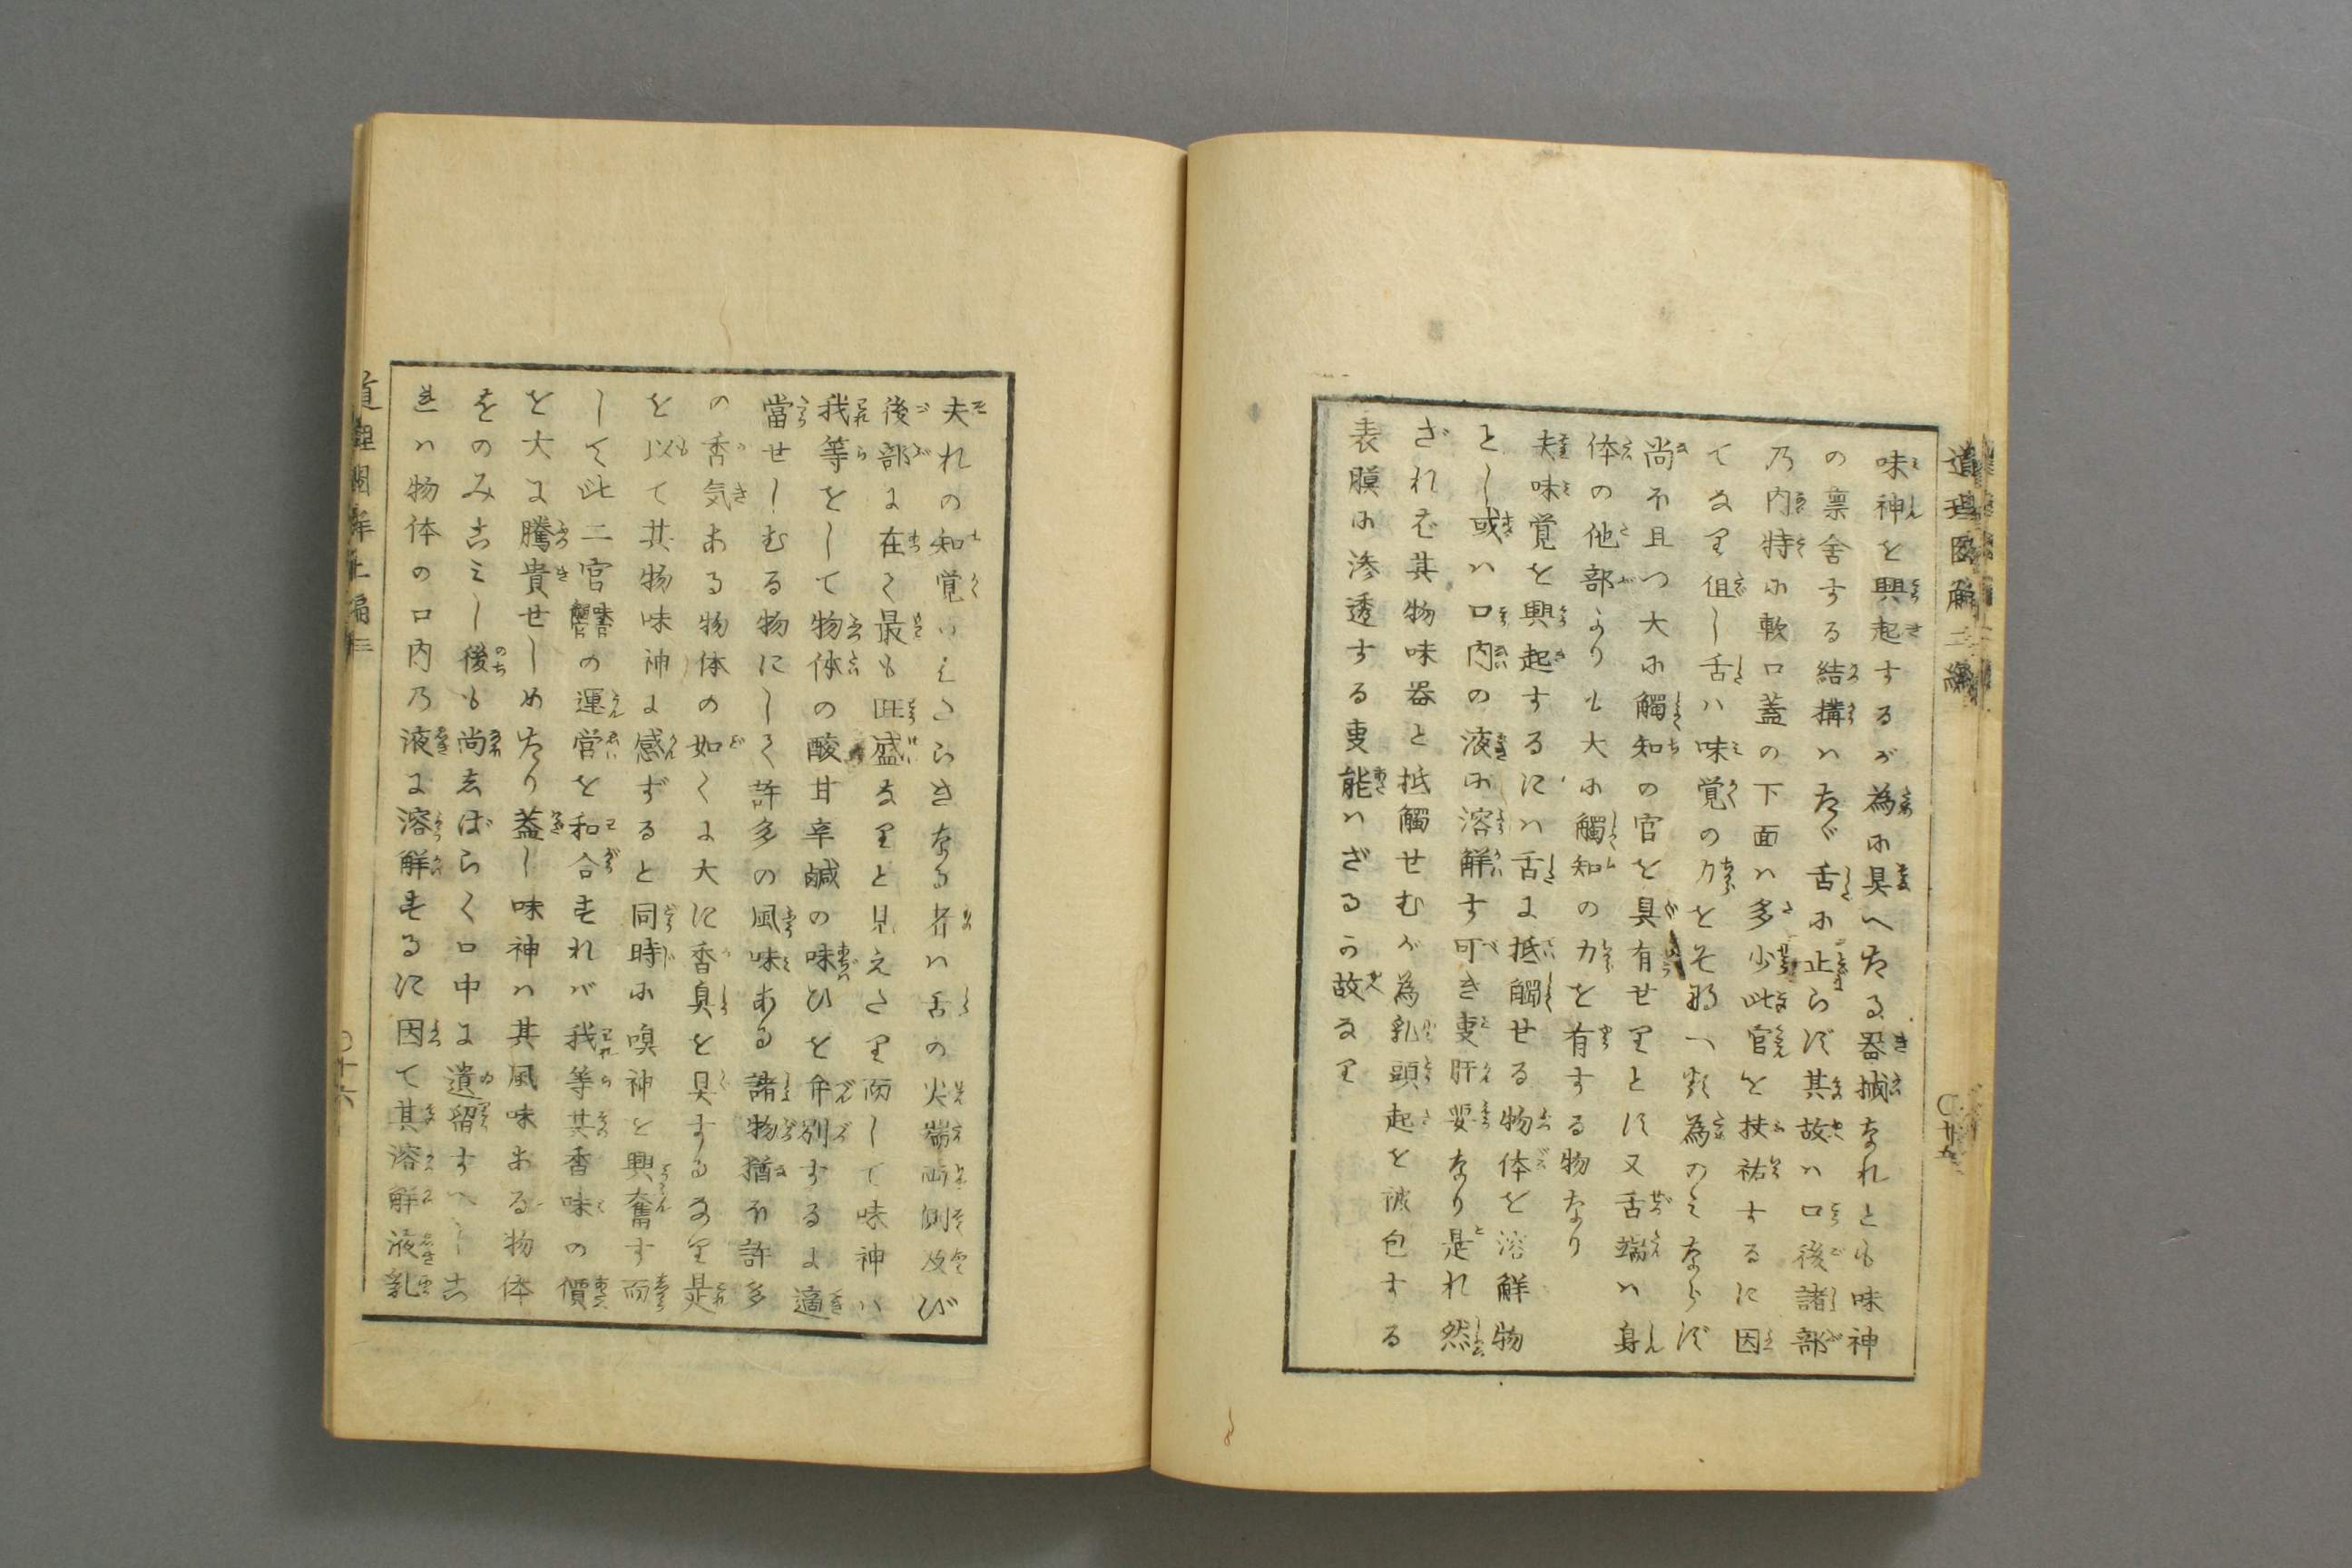 味神を興起するが為に具へたる器械なれとも味神
の禀舎する結構ハたゞ舌に止らず其故ハ口後諸部
乃内特に軟口蓋の下面ハ多少此官を扶祐するに因
てなり但し舌ハ味覚の力をその為のみならず
尚ほ且つ大に觸知の官を具有せりとす又舌端ハ身
体の他部よりも大に觸知の力を有する物なり
夫味覚を興起するにハ舌に抵觸せる物体を溶解物
とし或ハ口内の液に溶解す可き事肝要なり是れ然
ざれば其物味器と抵觸せむが為乳頭起を被包する
表膜に滲透する事能ハざるか故なり
道理図解二編
〇廿五
夫れの知覚いたらきなる者ハ舌の尖端両側及び
後部に在て最も旺盛なりと見えたり而して味神ハ
我等をして物体の酸甘辛鹹の味ひを弁別するに適
當せしむる物にして許多の風味ある諸物猶ほ許多
の香気ある物体の如くに大に香臭を具するなり是
を以て其物味神に感ずると同時に嗅神を興奮す而
して此二官の運営を和合すれば我等其香味の價
を大に騰貴せしめたり蓋し味神ハ其風味ある物体
をのみ試みし後も尚ほしばらく口中に遺留すへしこ
れハ物体の口内乃液に溶解するに因て其溶解液乳
道理圖解二編
〇廿六